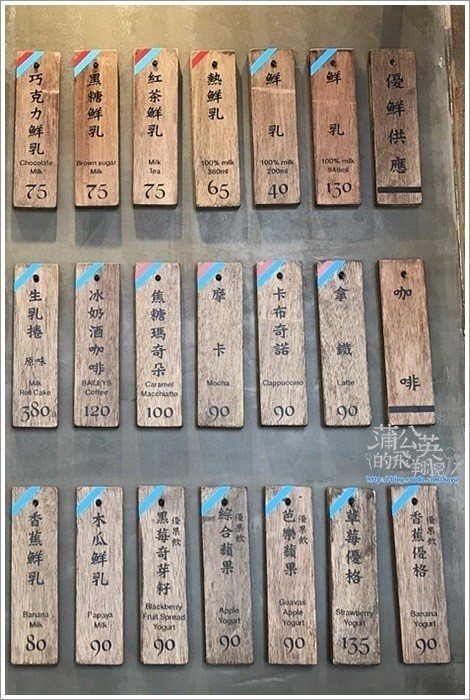 優鮮供應
鮮乳
100% milk
946ml
130
鮮乳
100% milk
200ml
40
熱鮮乳
100% milk
360ml
65
紅茶鮮乳
Milk
Tea
75
黑糖鮮乳
Brown sugar
Milk
75
巧克力鮮乳
Chocolate
Milk
75
咖啡
拿鐵
Latte
90
卡布奇諾
Cappuccino
90
摩卡
Mocha
90
焦糖瑪奇朵
Caramel
Macchiatto
100
冰奶酒咖啡
BAILEYS
Coffee
120
生乳捲
原味
Milk
Roll Cake
380
優果飲
香蕉優格
Banana
Yogurt
90
草莓優格
Strawberry
Yogurt
135
優果飲
芭樂蘋果
Guavas
Apple
Yogurt
90
優果飲
綜合蘋果
Apple
Yogurt
90
優果飲
黑莓奇芽籽
Blackberry
Fruit Spread
Yogurt
90
木瓜鮮乳
Papaya
Milk
90
香蕉鮮乳
Banana
Milk
80
蒲公英
的飛翔